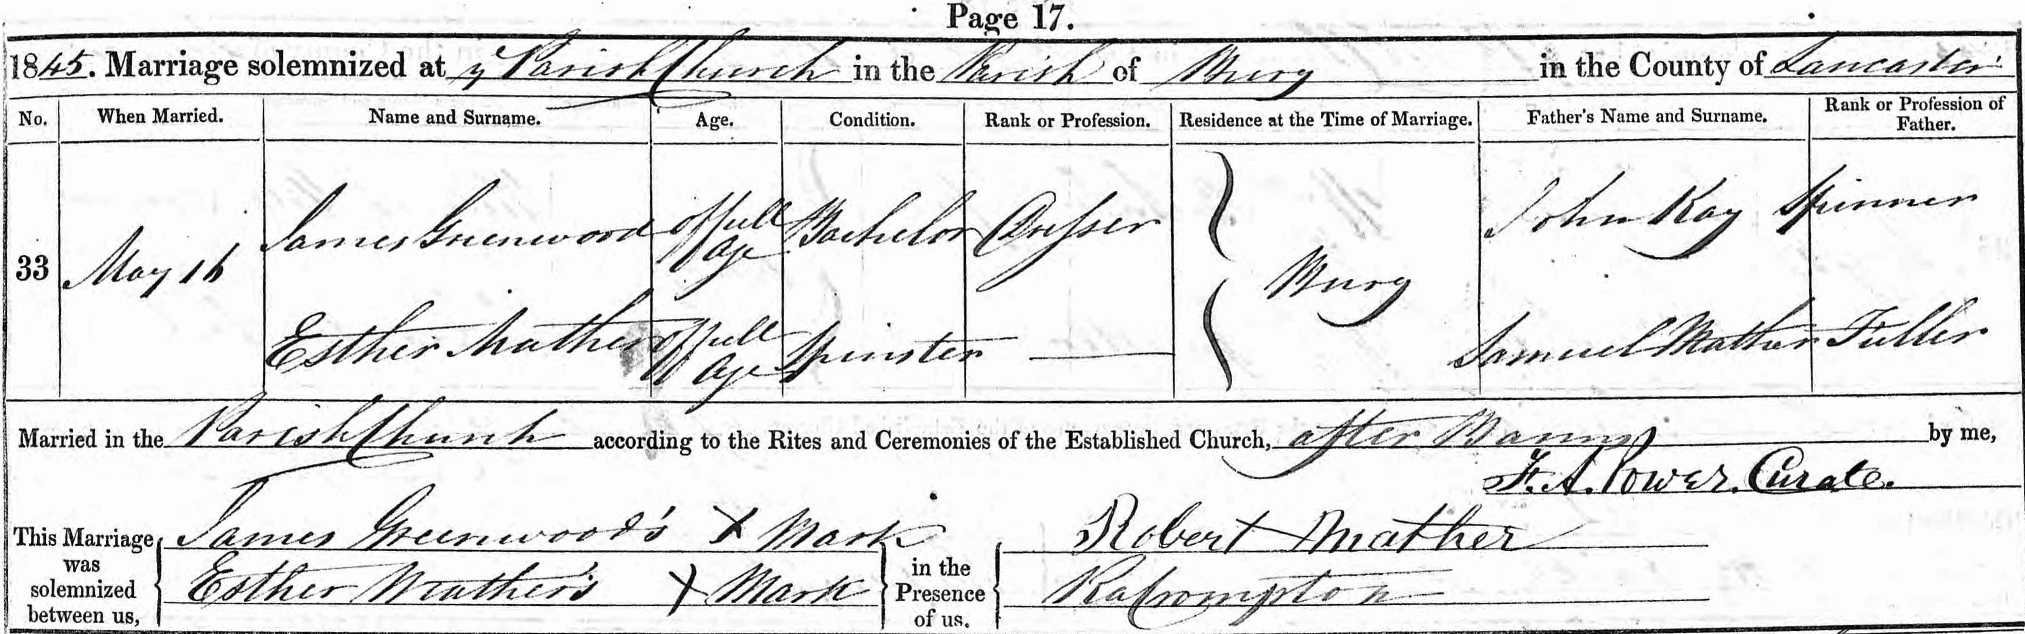 Page 17.
1845. Marriage solemnized at y Parish Church in the Parish of Bury in the County of Lancaster
No. When Married. Name and Surname. Age. Condition. Rank or Profession. Residence at the Time of Marriage. Father's Name and Surname. Rank or Profession of Father.
James Greenwood of full Age Bachelor Dresser John Kay Spinner
33 May 16 Bury
Esther Mather of full Age Spinster — Samuel Mather Fuller
Married in the Parish Church according to the Rites and Ceremonies of the Established Church, after Banns by me,
F. A. Power. Curate.
This Marriage was solemnized between us, James Greenwood's X Mark in the Presence of us, Robert Mather
Esther Mather's X Mark Ra Crompton